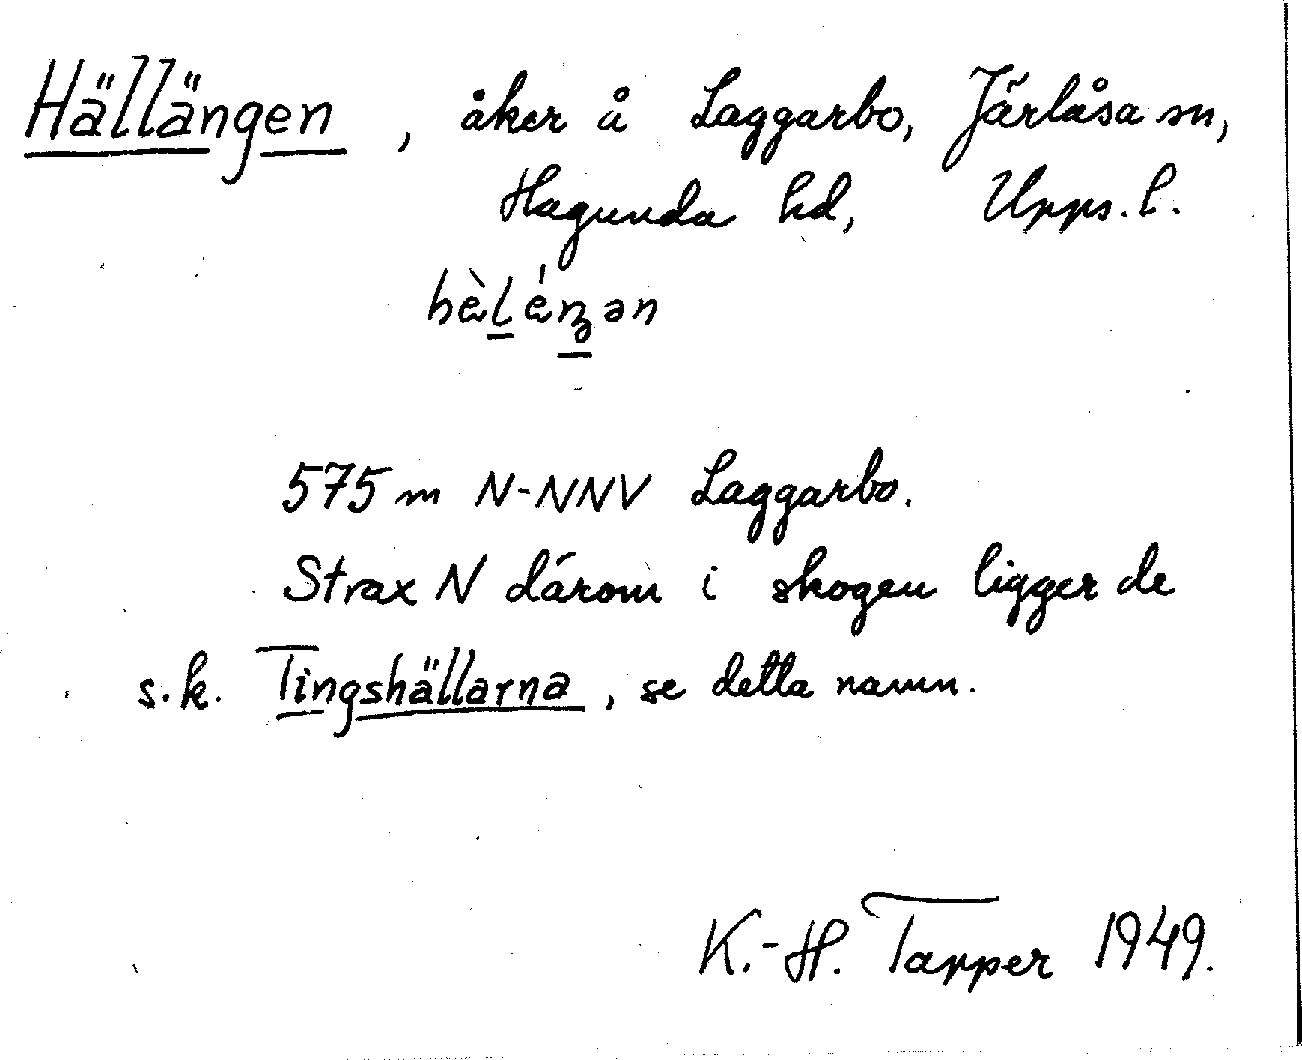 Hällängen, åker å Laggarbo, Järlåsa sn,
Hagunda hd, Upps. l.
575 m N-NNV Laggarbo.
Strax N därom i skogen ligger de
s.k. Tingshällarna, se detta namn.
K.-H. Tapper 1949.